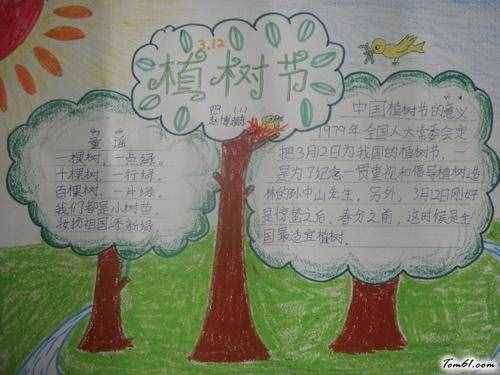 3.12
植树节
四（1）
童谣
一棵树，一点绿。
十棵树，一行绿。
百棵树，一片绿。
我们都是小树苗，
妆扮祖国季新绿。
中国植树节的意义
1979年全国人大常委会定
把3月12日为我国的植树节，
是为了纪念一贯重视和倡导植树造
林的孙中山先生，另外，3月12日刚好
是惊蛰之后，春分之前，这时候是全
国最适宜植树。
Tom61.com